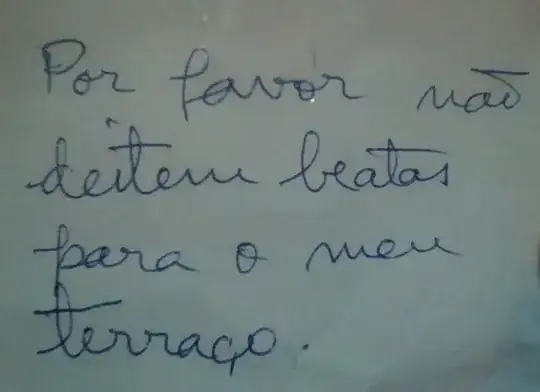 Por favor não
deitem beatas
para o meu
terraço.